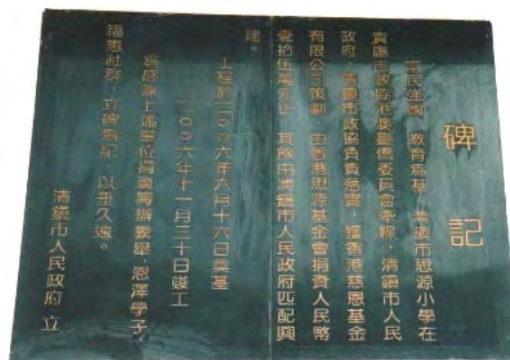 碑記
富民強國，教育爲基。清鎮市思源小學在
貴陽市政協港澳臺僑委員會牽線，清鎮市人民
政府、清鎮市政協負責落實，獲香港慈恩基金
有限公司策劃，由香港思源基金會捐資人民幣
壹拾伍萬元正，其餘由清鎮市人民政府匹配興
建。
工程於二００六年六月十六日奠基
二００六年十一月三十日竣工
爲感謝上述單位捐資籌辦義舉，恩澤學子，
福惠社群，立碑爲記，以垂久遠。
清鎮市人民政府 立